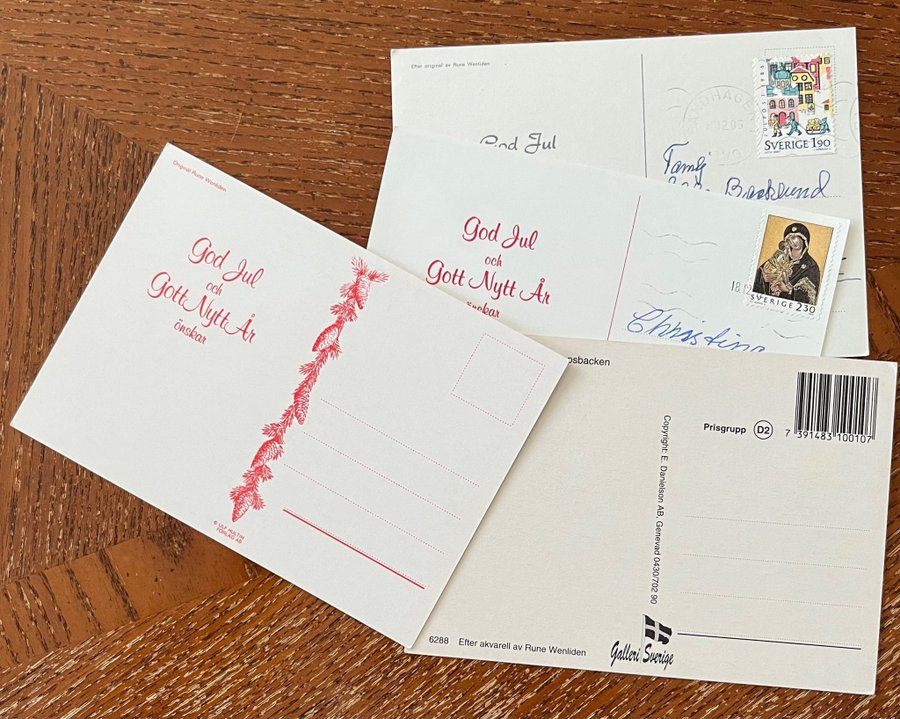 Efter original av Rune Wenliden
God Jul
SVERIGE 1.90
Familj
Backlund
God Jul
och
Gott Nytt År
önskar
SVERIGE 2.30
Christina
Original Rune Wenliden
God Jul
och
Gott Nytt År
önskar
© ULF HULTIN
FÖRLAG AB
Prisgrupp D2
7 391483 100107
Copyright: E. Danielson AB, Genevad 0430/702 90
6288 Efter akvarell av Rune Wenliden
Galleri Sverige